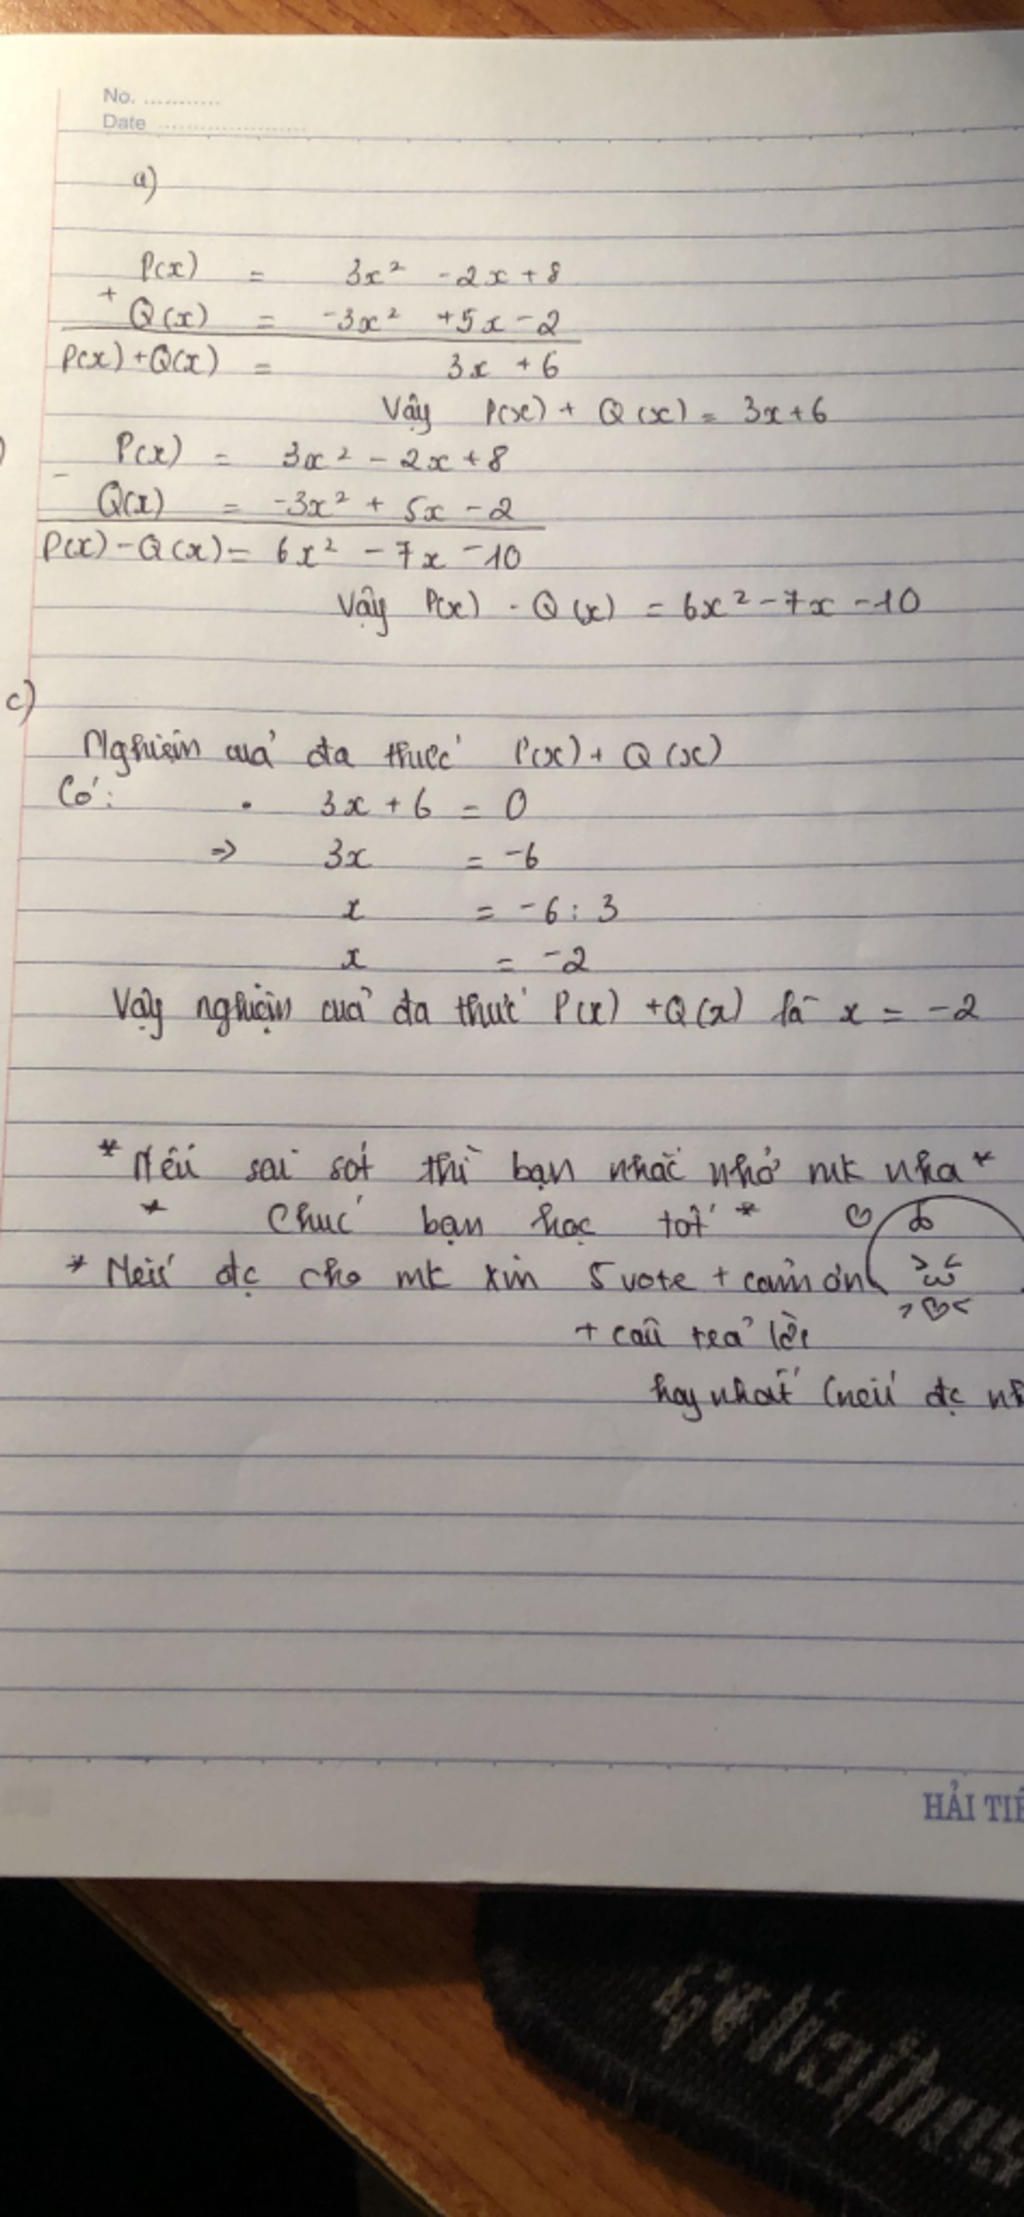 No. ...........
Date .....................
a)
P(x) = 3x² - 2x + 8
+
Q(x) = -3x² + 5x - 2
P(x) + Q(x) = 3x + 6
Vậy P(x) + Q(x) = 3x + 6
)
P(x) = 3x² - 2x + 8
-
Q(x) = -3x² + 5x - 2
P(x) - Q(x) = 6x² - 7x - 10
Vậy P(x) - Q(x) = 6x² - 7x - 10
c)
Nghiệm của đa thức P(x) + Q(x)
Có: . 3x + 6 = 0
=> 3x = -6
x = -6 : 3
x = -2
Vậy nghiệm của đa thức P(x) + Q(x) là x = -2
* Nếu sai sót thì bạn nhắc nhở mk nha *
* Chúc bạn học tốt *
* Nếu đc cho mk xin 5 vote + cảm ơn
+ câu trả lời
hay nhất (nếu đc
HẢI TIẾ